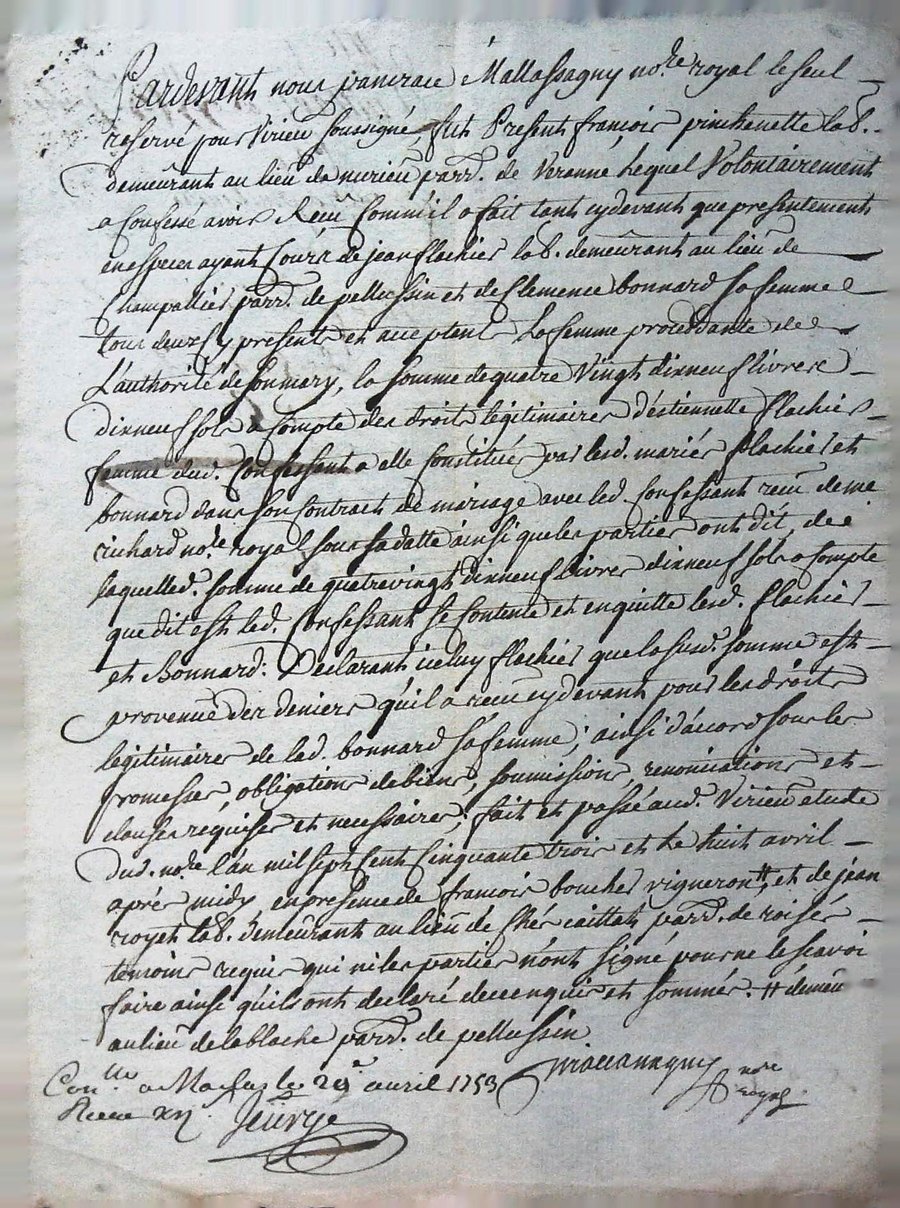 Pardevant nous pancrace Mallassagny no.re royal le seul
reservé pour Virieu soussigné, fut Present francois pinchenette lab.
demeurant au lieu de murieu parr. de Veranne, Lequel Volontairement
a Confessé avoir Receu Comm'il a fait tant cydevant que presentement
en especes ayant Cours de jean flachier lab. demeurant au lieu de
Champallier parr. de pellussin et de Clemence bonnard sa femme
tous deux cy presents et acceptant La femme procedante de
L'authorité de son mary, la somme de quatre Vingt dixneuf livres
dixneuf sols a Compte des droits legitimaires d'estiennette flachier
femme dud. Confessant a elle Constitués par lesd. mariés flachier et
bonnard dans son Contract de mariage avec led. Confessant receu de me
richard no.re royal sous sa datte ainsi que les parties ont dit, de
laquelled. somme de quatrevingt dixneuf livres dixneuf sols a Compte
que dit est led. Confessant se Contente et en quitte lesd. flachier
et Bonnard. Declarant iceluy flachier que la susd. somme est
provenüe des deniers qu'il a receu cydevant pour les droits
legitimaires de lad. bonnard sa femme; ainsi d'accord sous les
promesses, obligations de biens, soumissions, renonciations et
clauses requises et necessaires; fait et passé aud. Virieu etude
dud. no.re l'an mil sept Cent Cinquante trois et Le huit avril
aprés midy en presence de francois boucher vigneron #, et de jean
royet lab. demeurant au lieu de parr. de roisey
temoins requis qui ni les parties n'ont signé pour ne le scavoir
faire ainsi qu'ils ont declaré de ce enquis et sommés. # demeu
au lieu de lablache parr. de pellussin
Mallassagny no.re royal
Con.lle a Maclas le 29e avril 1753
Receu xii s Jeurye